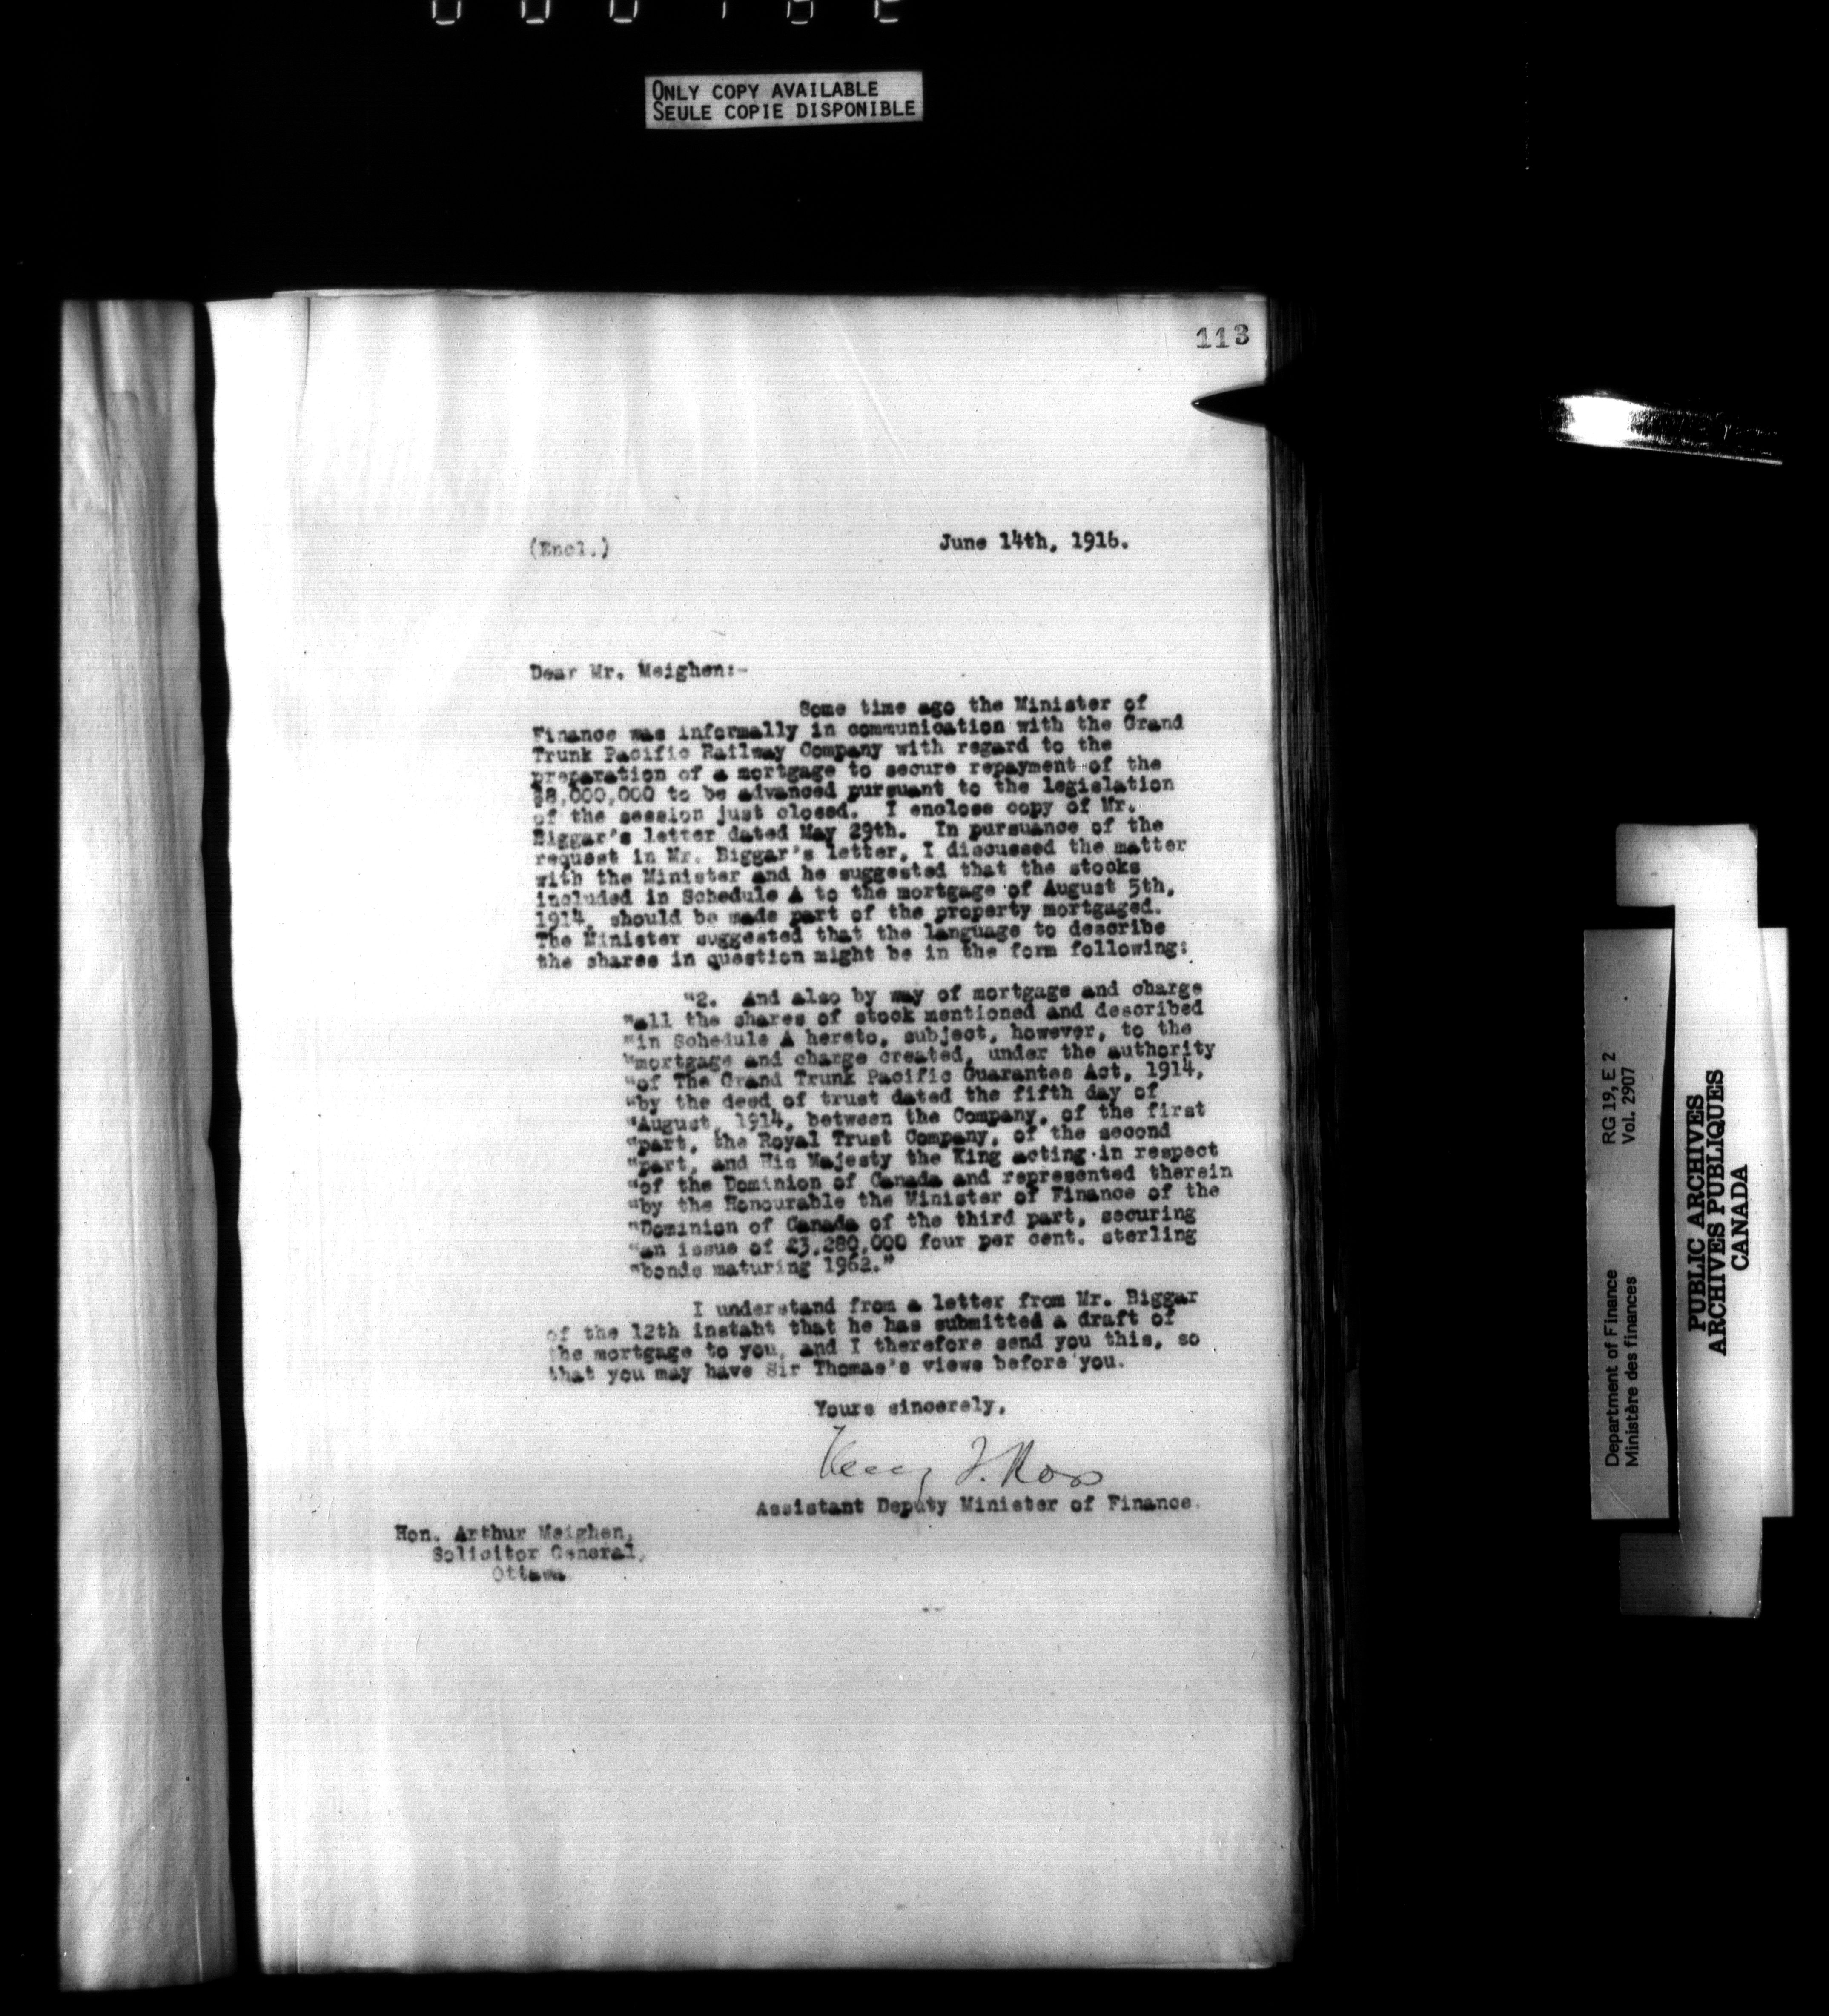 ONLY COPY AVAILABLE
SEULE COPIE DISPONIBLE
113
(Encl.)
June 14th, 1916.
Dear Mr. Meighen:-
Some time ago the Minister of
Finance was informally in communication with the Grand
Trunk Pacific Railway Company with regard to the
preparation of a mortgage to secure repayment of the
$8,000,000 to be advanced pursuant to the legislation
of the session just closed. I enclose copy of Mr.
Biggar's letter dated May 29th. In pursuance of the
request in Mr. Biggar's letter, I discussed the matter
with the Minister and he suggested that the stocks
included in Schedule A to the mortgage of August 5th,
1914, should be made part of the property mortgaged.
The Minister suggested that the language to describe
the shares in question might be in the form following:
"2. And also by way of mortgage and charge
"all the shares of stock mentioned and described
"in Schedule A hereto, subject, however, to the
"mortgage and charge created, under the authority
"of The Grand Trunk Pacific Guarantee Act, 1914,
"by the deed of trust dated the fifth day of
"August, 1914, between the Company, of the first
"part, the Royal Trust Company, of the second
"part, and His Majesty the King acting in respect
"of the Dominion of Canada and represented therein
"by the Honourable the Minister of Finance of the
"Dominion of Canada of the third part, securing
"an issue of £3,280,000 four per cent. sterling
"bonds maturing 1962."
I understand from a letter from Mr. Biggar
of the 12th instant that he has submitted a draft of
the mortgage to you, and I therefore send you this, so
that you may have Sir Thomas's views before you.
Yours sincerely,
Henry T. Ross
Assistant Deputy Minister of Finance.
Hon. Arthur Meighen,
Solicitor General,
Ottawa
Department of Finance RG 19, E 2
Ministère des finances Vol. 2907
PUBLIC ARCHIVES
ARCHIVES PUBLIQUES
CANADA